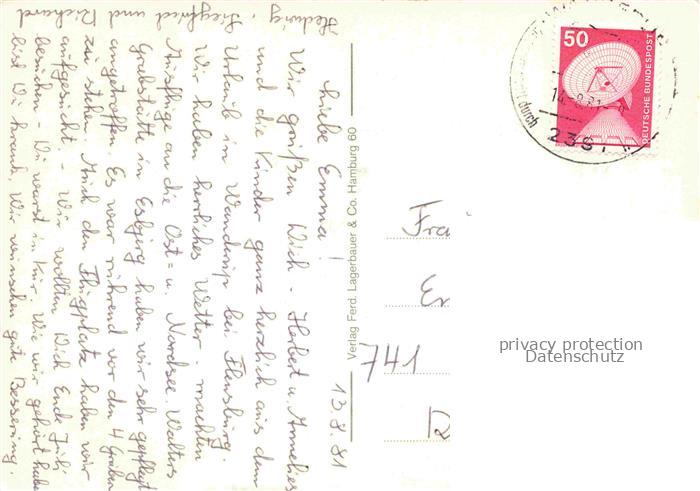 13.8.81
Liebe Emma!
Wir grüßen Dich - Herbert u. Annelies
und die Kinder ganz herzlich aus dem
Urlaub in Wanderup bei Flensburg.
Wir haben herrliches Wetter - machten
Ausflüge an die Ost= u. Nordsee. Walters
Grabstätte in Esbjerg haben wir sehr gepflegt
angetroffen. Es war rührend vor den 4 Gräbern
zu stehen. Auch den Flugplatz haben wir
aufgesucht. - Wir wollten Dich Ende Juli
besuchen - Du warst in Kur. Wie wir gehört haben
bist Du krank. Wir wünschen gute Besserung
Hedwig, Siegfried und Richard
Verlag Ferd. Lagerbauer & Co. Hamburg 60
50
DEUTSCHE BUNDESPOST
durch
2391
Fra
Em
741
privacy protection
Datenschutz